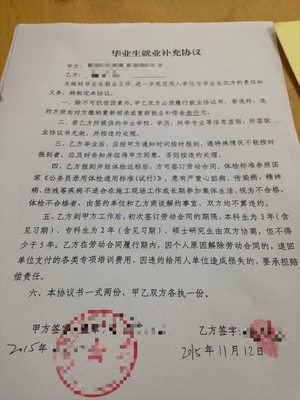 毕业生就业补充协议
甲方：
乙方：
为做好毕业生就业工作，进一步规范用人单位与毕业生双方的责任和
义务，特制定本协议。
一、除不可抗拒因素外，甲乙双方必须履行就业协议书，若违约，违
约方须向对方缴纳重新招录或重新就业补偿金叁仟元。
二、若乙方所提供的毕业学校、学历、所学专业等信息虚假，所签就
业协议书无效，并按违约处理。
三、乙方毕业后，应按甲方通知时间按时报到，遇特殊情况不能按时
报到者，应及时告知并征得甲方同意，否则按违约处理。
四、乙方报到并经体检达标后，方可签订劳动合同。体检标准参照国
家《公务员录用体检通用标准(试行)》，患有严重心脏病、传染病、精神
病、伤残等疾病不适合在施工现场工作或长期参加集体生活，视为不合格。
体检不合格者，由签约单位和乙方商谈解约事宜，双方均不算违约。
五、乙方到甲方工作后，初次签订劳动合同的期限，本科生为 3 年（含
见习期）、专科生为 2 年（含见习期）、硕士研究生由双方协商，但不得
少于 5 年。乙方在劳动合同履行期内，因个人原因解除劳动合同的，退回
单位支付的各类专项培训费用，因违约给用人单位造成损失的，要承担赔
偿责任。
六、本协议书一式两份，甲乙双方各执一份。
甲方签字： 乙方签字：
2015年 2015 年 11 月 12 日